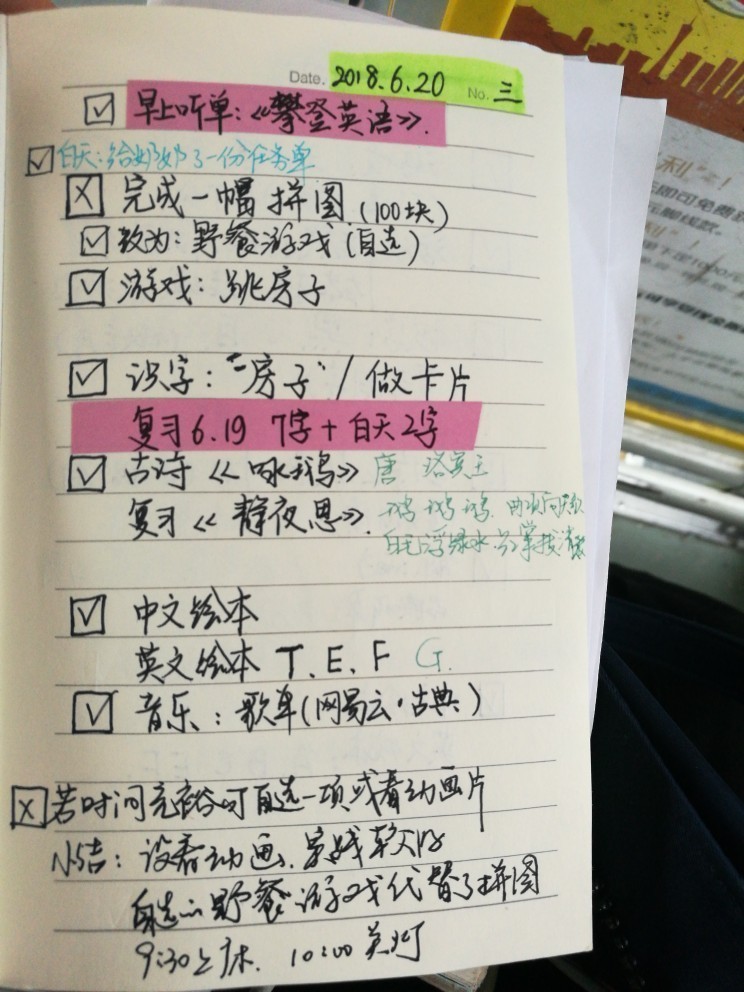 Date. 2018.6.20 No. 三
早上听单：《攀登英语》.
白天：给奶奶了一份任务单
完成一幅拼图（100块）
改为：野餐游戏（自选）
游戏：跳房子
识字：“房子”/做卡片
复习6.19 7字+白天2字
古诗《咏鹅》唐 骆宾王
复习《静夜思》. 鹅鹅鹅. 曲项向天歌
白毛浮绿水. 红掌拨清波
中文绘本
英文绘本 T.E.F G.
音乐：歌单（网易云·古典）
若时间充裕可自选一项或看动画片
小结：没看动画.
自选的野餐游戏代替了拼图
9:30上床. 10:00关灯
利”！
即可免费